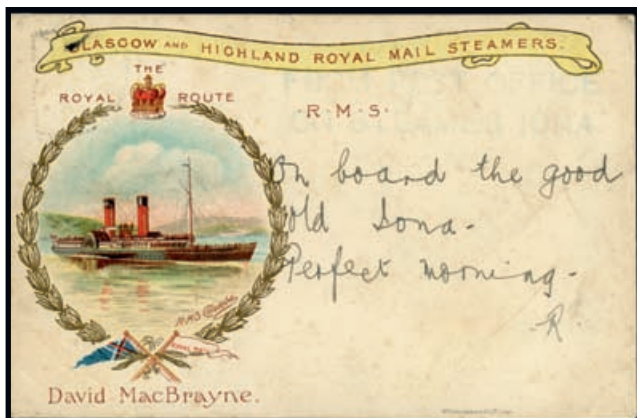 GLASGOW AND HIGHLAND ROYAL MAIL STEAMERS.
THE
ROYAL ROUTE
R.M.S.
On board the good
old Iona-
Perfect morning-
R.
R.M.S. Columba
ROYAL MAIL
David MacBrayne.